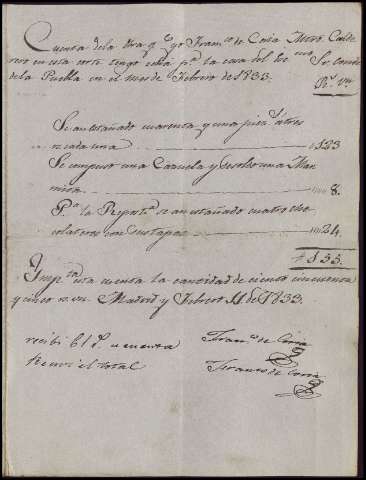 Cuenta de la obra q.e yo Fran.co de Coria Mtro. Calde
rero en esta corte tengo echa p.a la casa del Exc.mo Sr. Conde
de la Puebla en el mes de Febrero de 1833.
R.s V.n
Se an estañado cuarenta y una pieza á tres
r.s cada una 123
Se compuso una Cazuela y se soldo una Mar
mita 8.
P.a la Reposte.a se an estañado cuatro cho
colateros con sus tapas 24.
155.
Ymp.ta esta cuenta la cantidad de ciento cincuenta
y cinco r.s v.n Madrid y Febrero 11 de 1833.
recibi 61 r.s a cuenta
Fran.co de Coria
recivi el total
Franco de Coria